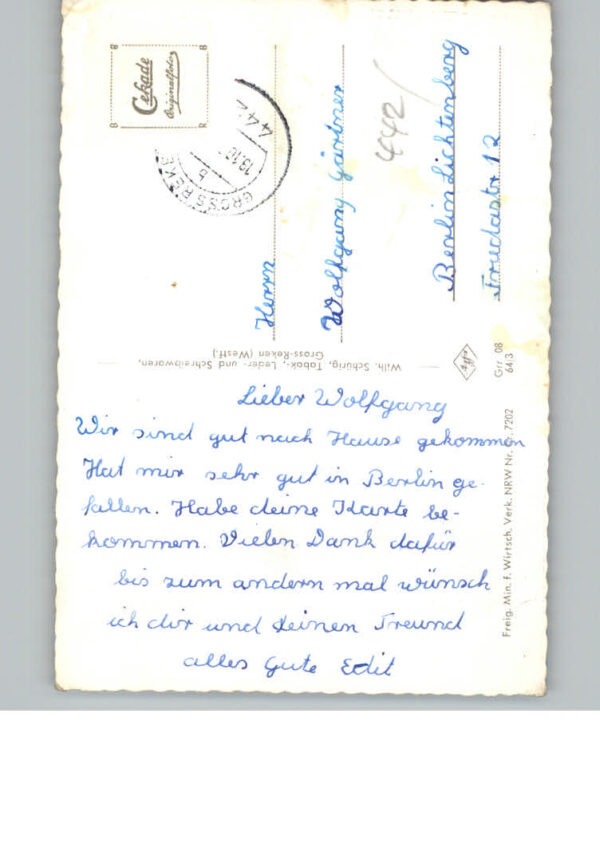 Lieber Wolfgang
Wir sind gut nach Hause gekommen
Hat mir sehr gut in Berlin ge-
fallen. Habe deine Karte be-
kommen. Vielen Dank dafür
bis zum andern mal wünsch
ich dir und deinen Freund
alles Gute Edit
Herrn
Wolfgang Gärtner
Berlin Lichtenberg
Friedastr 12
442/
Cekade
Originalfoto
GROSS REKE
13.10
b
Wilh. Schürig, Tabak-, Leder- und Schreibwaren,
Gross-Reken (Westf.)
Agfa
Grr 08
64/3
Freig. Min. f. Wirtsch. Verk. NRW Nr. 7202